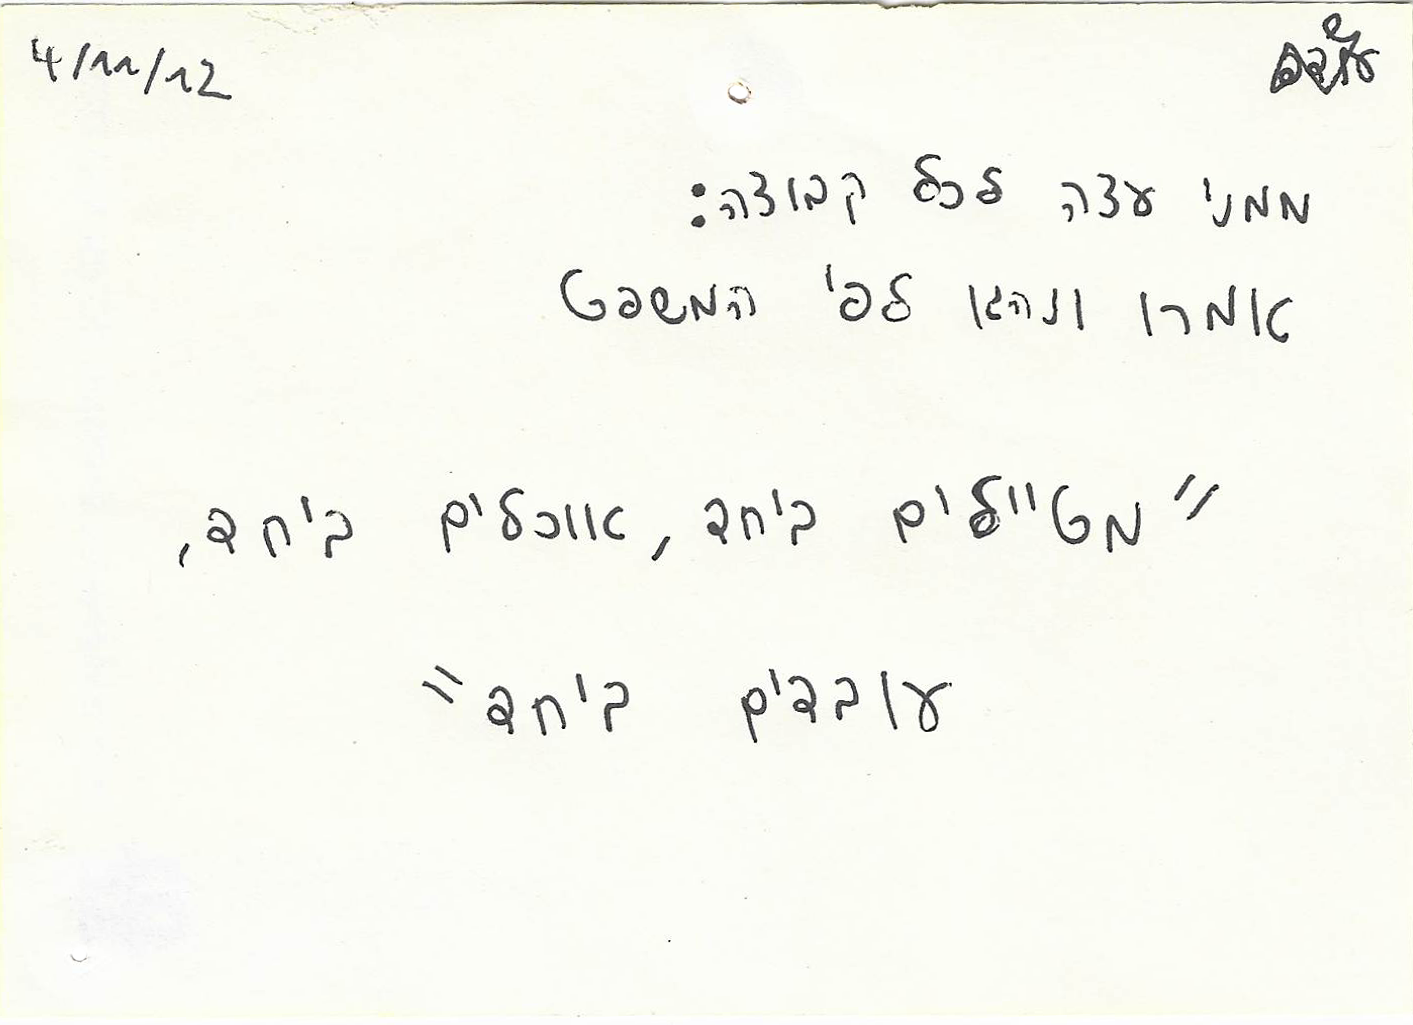 4/11/12
ממני עצה לכל קבוצה:
אמרו ונהגו לפי המשפט
"מטיילים ביחד, אוכלים ביחד,
עובדים ביחד"